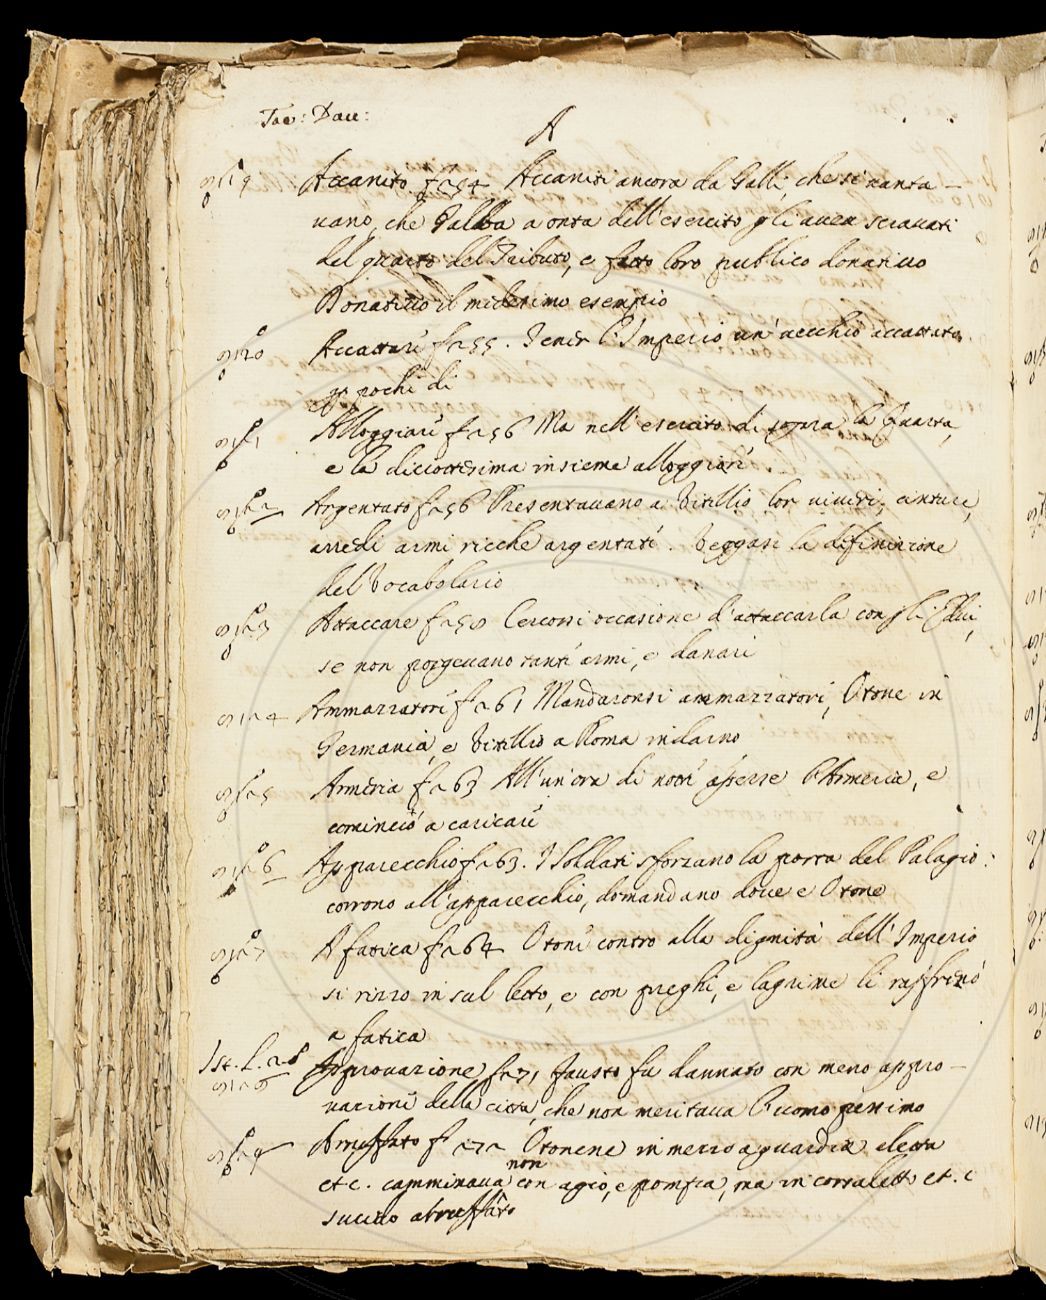 Tac: Dau:
A
Accanito f 254 Accaniti ancora da Galli, che si vanta-
uano, che Galba a onta dell'esercito gli auea sgrauati
del quarto del Tributo, e fatto loro publico donatiuo
Donatiuo il medesimo esempio
Accattare f 255. Tener l'Imperio un' uecchio accattato
p pochi di
Alloggiare f 256 Ma nell'esercito di sopra la Quarta,
e la diciottesima insieme alloggiate
Argentato f 256 Presentauano a Vitellio lor uiueri, cinture,
arredi armi ricche argentate. Veggasi la difinizione
del Vocabolario
Attaccare f 258 Cercossi occasione d'attaccarla con gli Edui,
se non porgeuano tanti armi, e danari
Ammazzatore f 261 Mandaronsi ammazzatori, Otone in
Germania, e Vitellio a Roma indarno
Armeria f 263 All'un'ora di notte aperse l'Armeria, e
cominciò a caricare
Apparecchio f 263. I Soldati sforzano la porta del Palagio:
corrono all'apparecchio, domandano doue e Otone
A fatica f 264 Otone contro alla dignità dell'Imperio
si rizzo in sul letto, e con preghi, e lagrime li raffrenò
a fatica
Ist. L. 2.
Approuazione f 271 Fausto fù dannato con meno appro-
uazione della citta, che non meritaua l'uomo pessimo
Arruffato f 272 Otone in mezzo a guardia eletta
etc. camminaua non con agio, e pompa, ma in corsaletto et. c
sucido abruffato